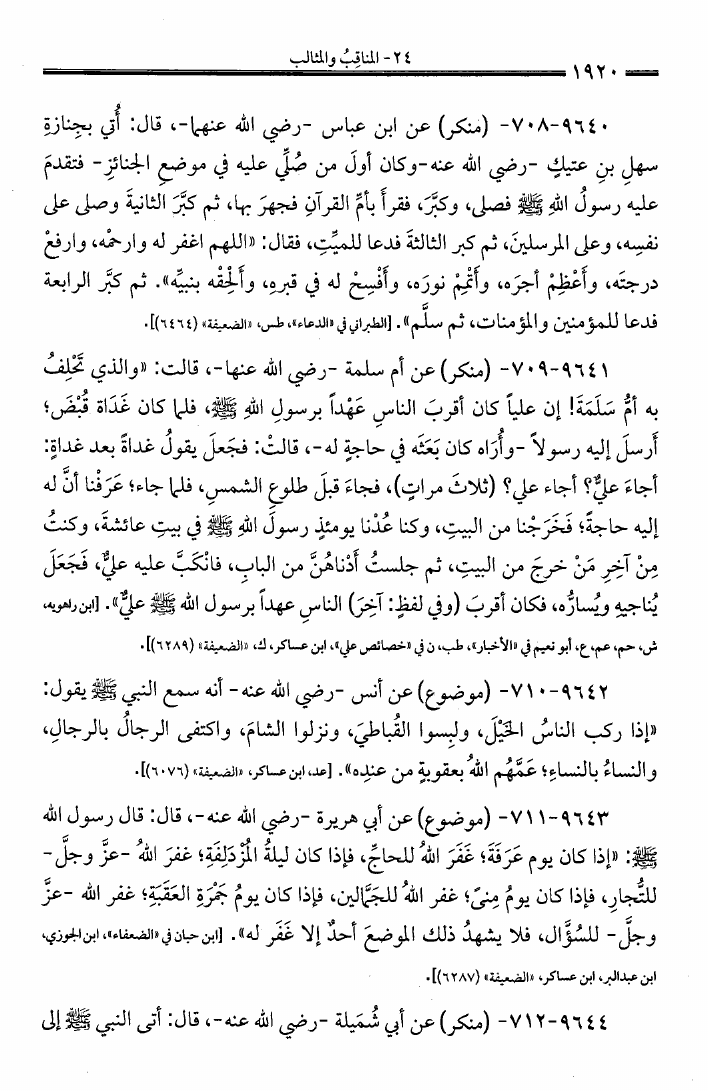 ٢٤- المناقبُ والمثالب
١٩٢٠
٩٦٤٠-٧٠٨- (منكر) عن ابن عباس -رضي الله عنهما-، قال: أُتي بجِنازةِ
سهلِ بنِ عتيكٍ -رضي الله عنه-وكان أولَ من صُلِّي عليه في موضعِ الجنائزِ- فتقدمَ
عليه رسولُ اللهِ ﷺ فصلى، وكبَّرَ، فقرأَ بأمِّ القرآنِ فجهرَ بها، ثم كبَّرَ الثانيةَ وصلى على
نفسِه، وعلى المرسلينَ، ثم كبر الثالثةَ فدعا للميِّتِ، فقال: «اللهم اغفر له وارحمْه، وارفعْ
درجتَه، وأَعْظِمْ أجرَه، وأَتْمِمْ نورَه، وأَفْسِحْ له في قبرِه، وأَلْحِقْه بنبيِّه». ثم كبَّر الرابعة
فدعا للمؤمنين والمؤمنات، ثم سلَّم». [الطبراني في «الدعاء»، طس، «الضعيفة» (٦٤٦٤)].
٩٦٤١-٧٠٩- (منكر) عن أم سلمة -رضي الله عنها-، قالت: «والذي تَحْلِفُ
به أمُّ سَلَمَةَ! إن علياً كان أقربَ الناسِ عَهْداً برسولِ اللهِ ﷺ، فلما كان غَدَاة قُبْضَ؛
أَرسلَ إليه رسولاً -وأُرَاه كان بَعَثَه في حاجةٍ له-، قالتْ: فجَعلَ يقولُ غداةً بعد غداةٍ:
أجاءَ عليٌّ؟ أجاء علي؟ (ثلاثَ مراتٍ)، فجاءَ قبلَ طلوعِ الشمسِ، فلما جاء؛ عَرَفْنا أنَّ له
إليه حاجةً؛ فَخَرَجْنا من البيتِ، وكنا عُدْنا يومئذٍ رسولَ اللهِ ﷺ في بيتِ عائشةَ، وكنتُ
مِنْ آخِرِ مَنْ خرجَ من البيتِ، ثم جلستُ أَدْناهُنَّ من البابِ، فانْكَبَّ عليه عليٌّ، فَجَعَلَ
يُناجيهِ ويُسارُّه، فكان أقربَ (وفي لفظٍ: آخِرَ) الناسِ عهداً برسول الله ﷺ عليٌّ». [ابن راهويه،
ش، حم، عم، ع، أبو نعيم في «الأخبار»، طب، ن في «خصائص علي»، ابن عساكر، ك، «الضعيفة» (٦٢٨٩)].
٩٦٤٢-٧١٠- (موضوع) عن أنس -رضي الله عنه- أنه سمع النبي ﷺ يقول:
«إذا ركب الناسُ الخَيْلَ، ولبِسوا القُباطيَ، ونزلوا الشامَ، واكتفى الرجالُ بالرجالِ،
والنساءُ بالنساءِ؛ عَمَّهُم اللهُ بعقوبةٍ من عندِه». [عد، ابن عساكر، «الضعيفة» (٦٠٧٦)].
٩٦٤٣-٧١١- (موضوع) عن أبي هريرة -رضي الله عنه-، قال: قال رسول الله
ﷺ: «إذا كان يوم عَرَفَةَ؛ غَفَرَ اللهُ للحاجِّ، فإذا كان ليلةُ المُزْدَلِفَةِ؛ غفرَ اللهُ -عزَّ وجلَّ-
للتُّجارِ، فإذا كان يومُ مِنىً؛ غفر اللهُ للجَمَّالين، فإذا كان يومُ جَمْرَةِ العَقَبَةِ؛ غفر الله -عزَّ
وجلَّ- للسُؤَّال، فلا يشهدُ ذلك الموضعَ أحدٌ إلا غَفَر له». [ابن حبان في «الضعفاء»، ابن الجوزي،
ابن عبدالبر، ابن عساكر، «الضعيفة» (٦٢٨٧)].
٩٦٤٤-٧١٢- (منكر) عن أبي شُمَيلة -رضي الله عنه-، قال: أتى النبي ﷺ إلى